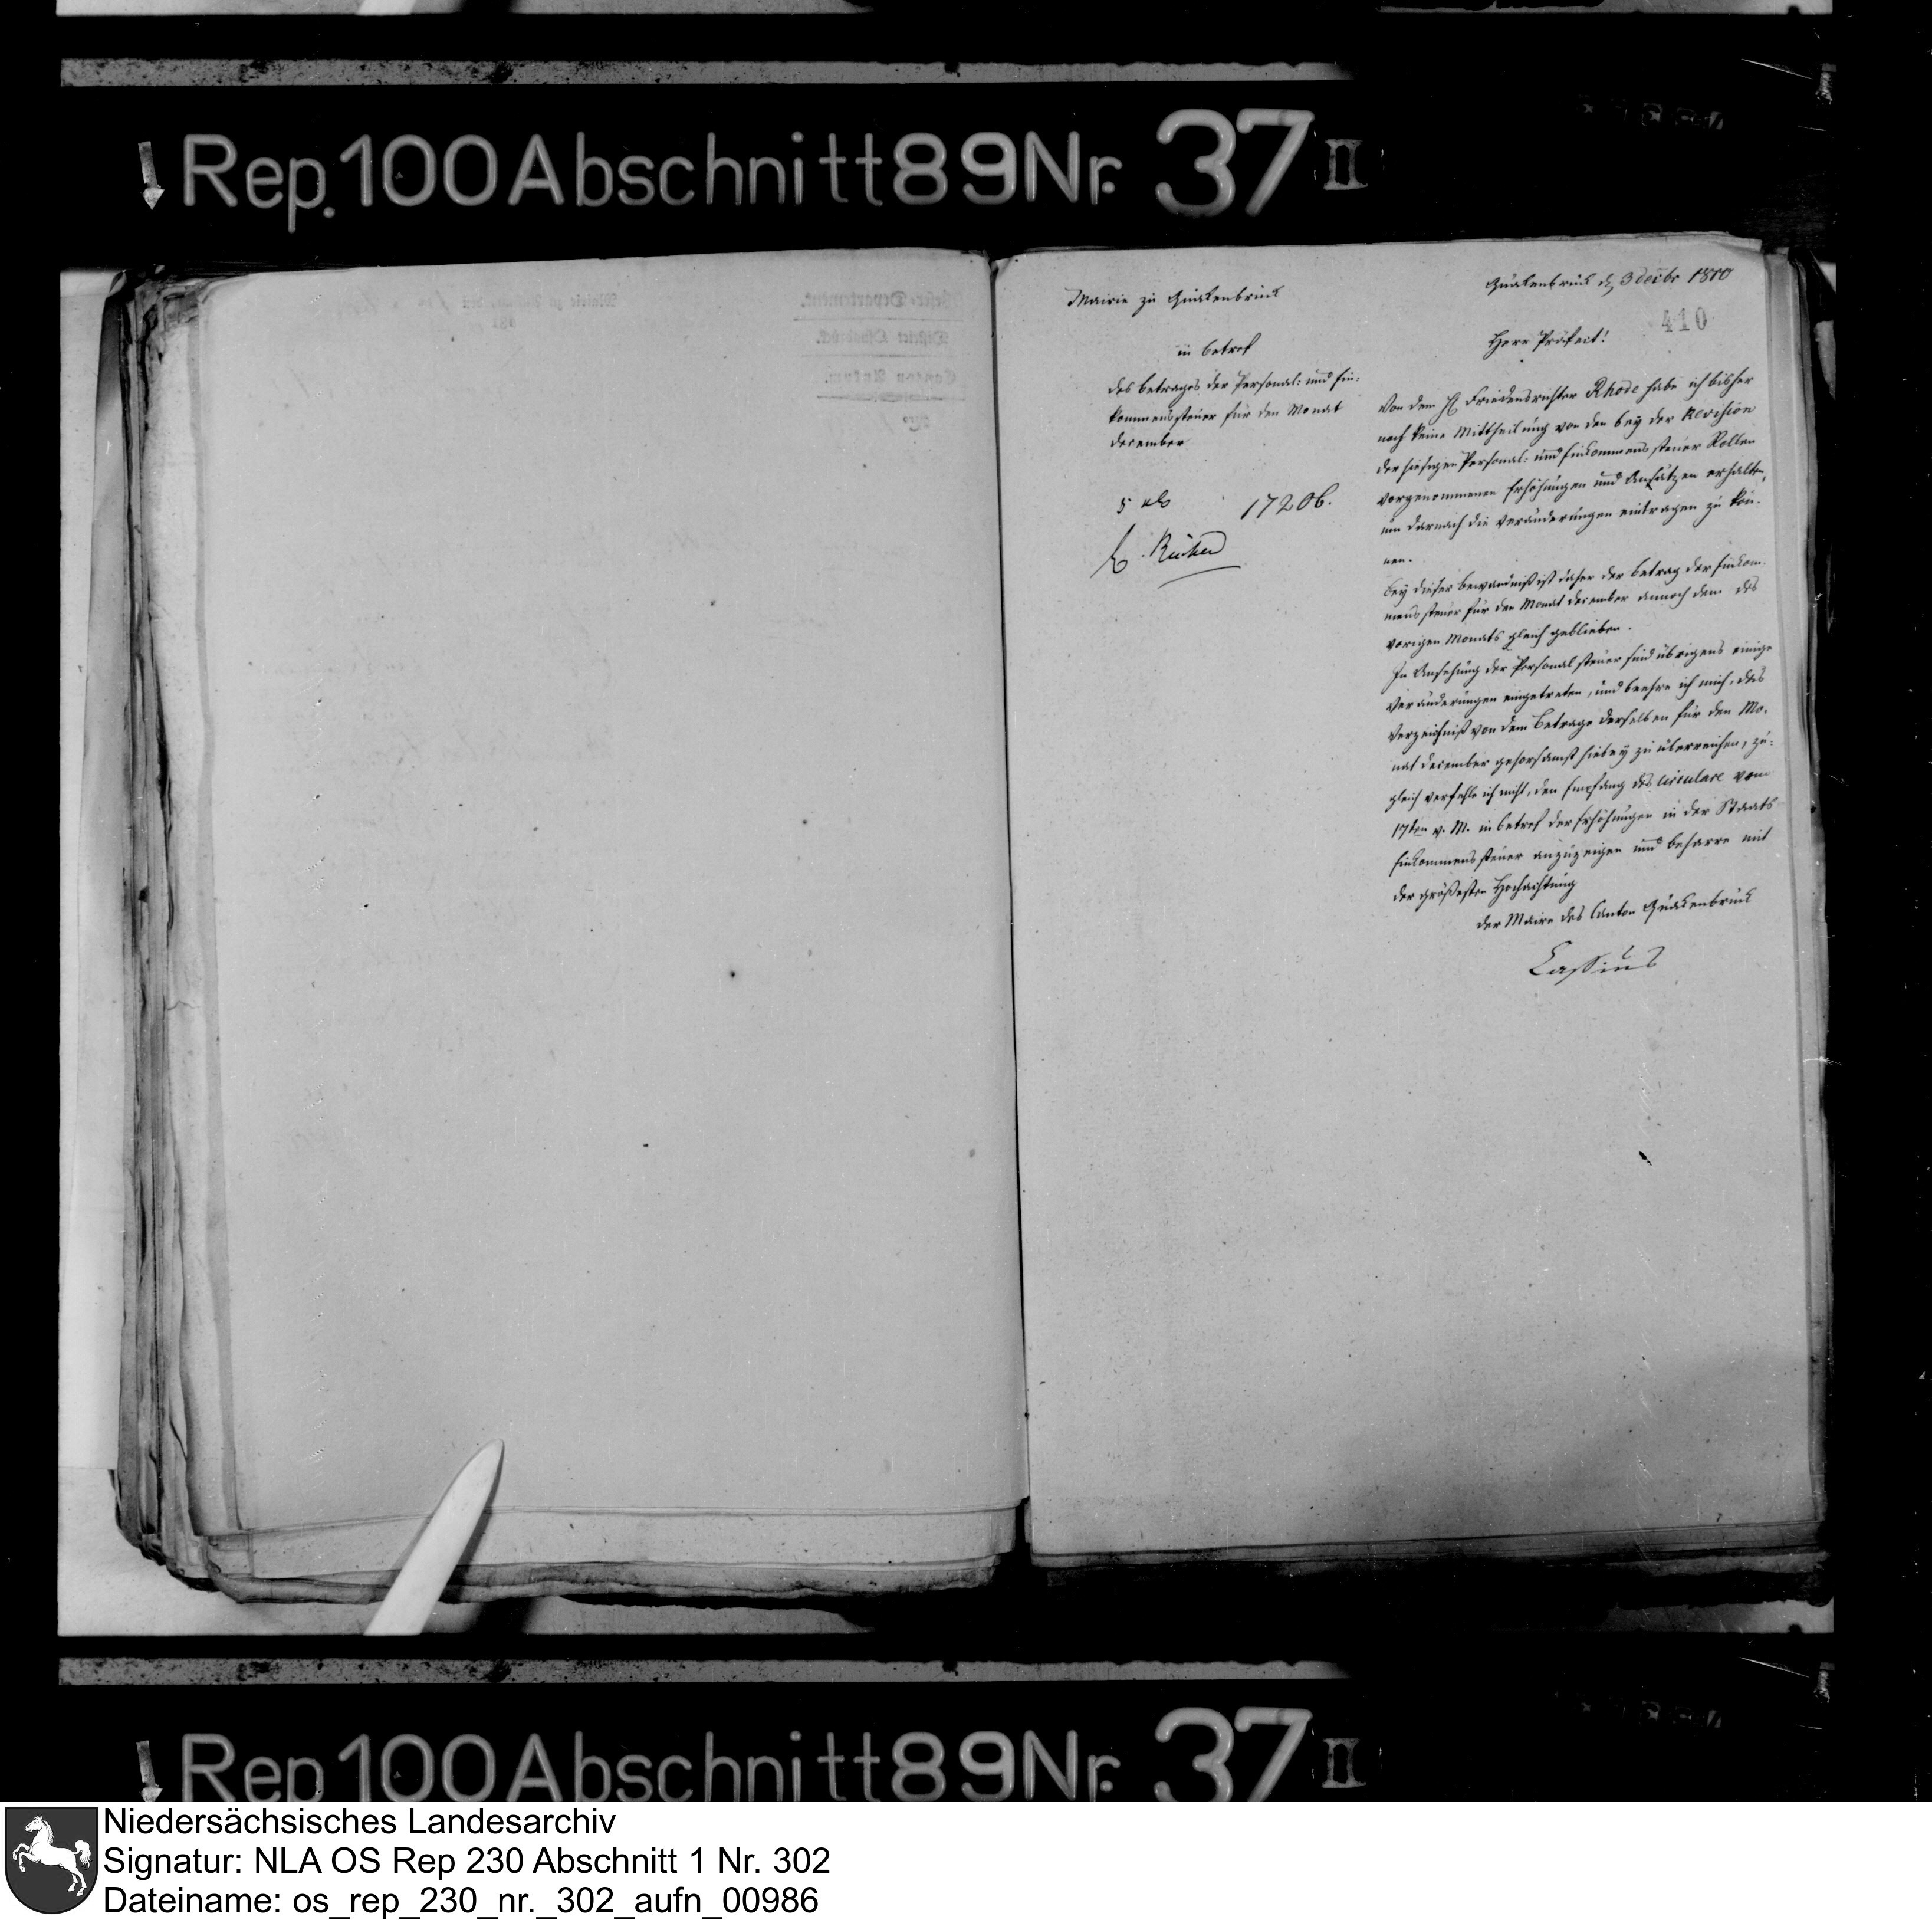 Rep. 100 Abschnitt 89 Nr. 37 II
Mairie zu Quakenbrück
in betref
des betrages der Personal- und Ein-
kommensteuer für den Monat
december
17206.
Quakenbrück d. 3 decbr 1810
410
Herr Präfect!
Von dem H. Friedensrichter Rhode habe ich bisher
noch keine Mittheilung von den bey der Revision
der hiesigen Personal- und Einkommensteuer Rollen
vorgenommenen Erhöhungen und Ansätzen erhalten,
um darnach die Veränderungen eintragen zu kön-
nen.
bey dieser bewandniß ist daher der betrag der Einkom-
mensteuer für den Monat december annoch dem des
vorigen Monats gleich geblieben.
In Ansehung der Personalsteuer sind übrigens einige
Veränderungen eingetreten, und beehre ich mich, das
Verzeichniß von dem Betrage derselben für den Mo-
nat december gehorsamst hiebey zu überreichen, zu-
gleich verfehle ich nicht, den Empfang des Circulare vom
17ten v. M. in betref der Erhöhungen in der Staats
Einkommensteuer anzuzeigen und beharre mit
der größesten Hochachtung
der Maire des Canton Quakenbrück
Cassius
Rep 100 Abschnitt 89 Nr. 37 II
Niedersächsisches Landesarchiv
Signatur: NLA OS Rep 230 Abschnitt 1 Nr. 302
Dateiname: os_rep_230_nr._302_aufn_00986